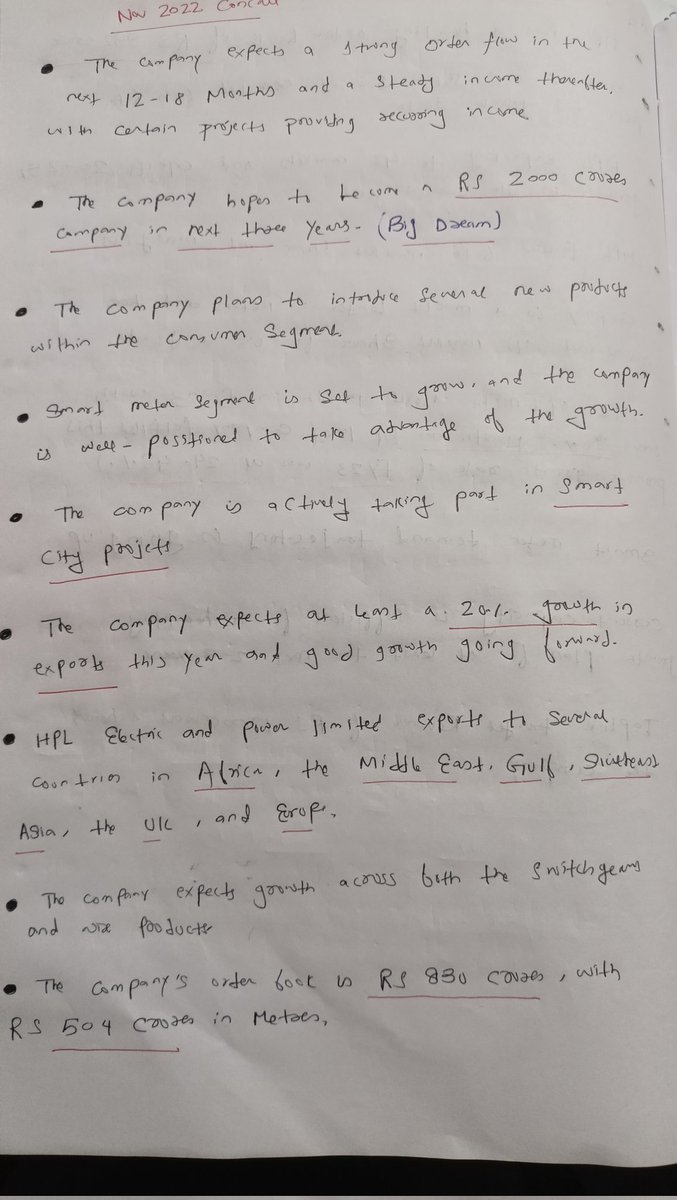 Nov 2022 Concall
• The company expects a strong order flow in the
next 12-18 Months and a steady income thereafter,
with certain projects providing recurring income.
• The company hopes to become a RS 2000 crores
company in next three years - (Big Dream)
• The company plans to introduce several new products
within the consumer segment.
• Smart meter segment is set to grow, and the company
is well-positioned to take advantage of the growth.
• The company is actively taking part in Smart
City projets
• The company expects at least a 20% growth in
exports this year and good growth going forward.
• HPL Electric and power limited exports to several
countries in Africa, the Middle East, Gulf, Southeast
Asia, the UK, and Europe.
• The company expects growth across both the switchgears
and wire products
• The company's order book is RS 830 crores, with
RS 504 crores in Meters,